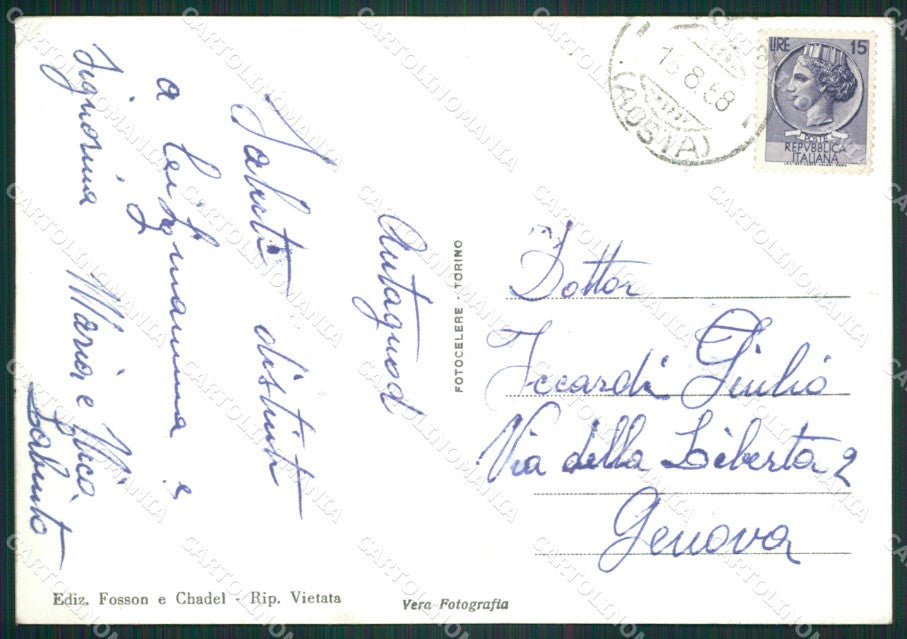 Antagnod
Saluti distinti
a lei, mamma e
Signorina Maria e
Dottor
Iccardi Giulio
Via della Libertà 2
Genova
LIRE 15
POSTE
REPVBBLICA
ITALIANA
8.68
(AOSTA)
FOTOCELERE - TORINO
Ediz. Fosson e Chadel - Rip. Vietata
Vera Fotografia
CARTOLINOMANIA